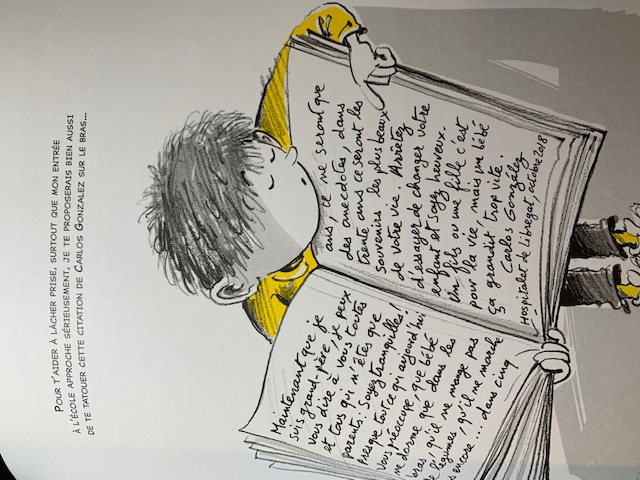 POUR T'AIDER À LÂCHER PRISE, SURTOUT QUE MON ENTRÉE
À L'ÉCOLE APPROCHE SÉRIEUSEMENT, JE TE PROPOSERAIS BIEN AUSSI
DE TE TATOUER CETTE CITATION DE CARLOS GONZALEZ SUR LE BRAS...
Maintenant que je
suis grand-père, je peux
vous dire à vous toutes
et tous qui n'êtes que
parents: Soyez tranquilles!
Presque tout ce qui aujourd'hui
vous préoccupe, que bébé
ne dorme que dans les
bras qu'il ne mange pas
légumes, qu'il ne marche
encore... dans cinq
ans ce ne seront que
des anecdotes, dans
trente ans ce seront les
souvenirs les plus beaux
de votre vie. Arrêtez
d'essayer de changer votre
enfant et soyez heureux.
Un fils ou une fille c'est
pour la vie, mais un bébé
ça grandit trop vite.
Carlos González
Hospitalet de Llobregat, octobre 2018